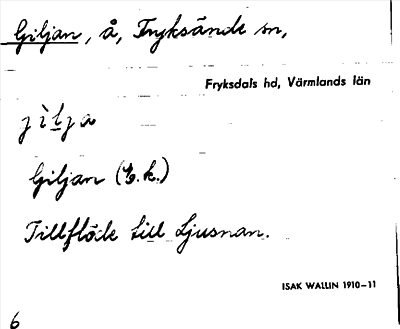 Giljan, å, Fryksände sn,
Fryksdals hd, Värmlands län
jìlja
Giljan (G.k.)
Tillflöde till Ljusnan.
ISAK WALLIN 1910–11
6